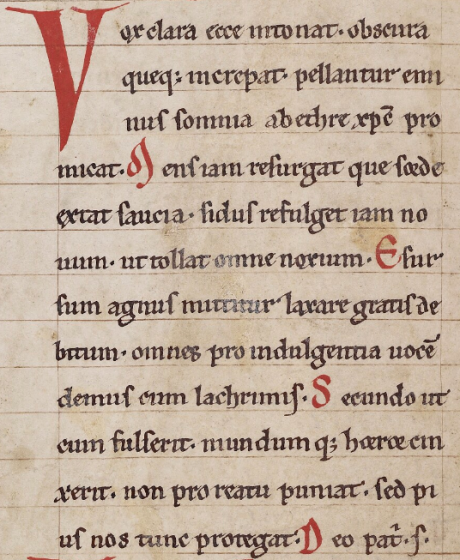 Vox clara ecce intonat· obscura
queq; increpat· pellantur emi
nus somnia ab ethre xpē pro
micat. Mens iam resurgat que sorde
extat saucia· sidus refulget iam no
uum· ut tollat omne noxium· E sur
sum agnus mittitur laxare gratis de
bitum· omnes pro indulgentia uocē
demus cum lachrimis. Secundo ut
cum fulserit· mundum q; horror cin
xerit· non pro reatu puniat· sed pi
us nos tunc protegat. Deo pat̄. s·